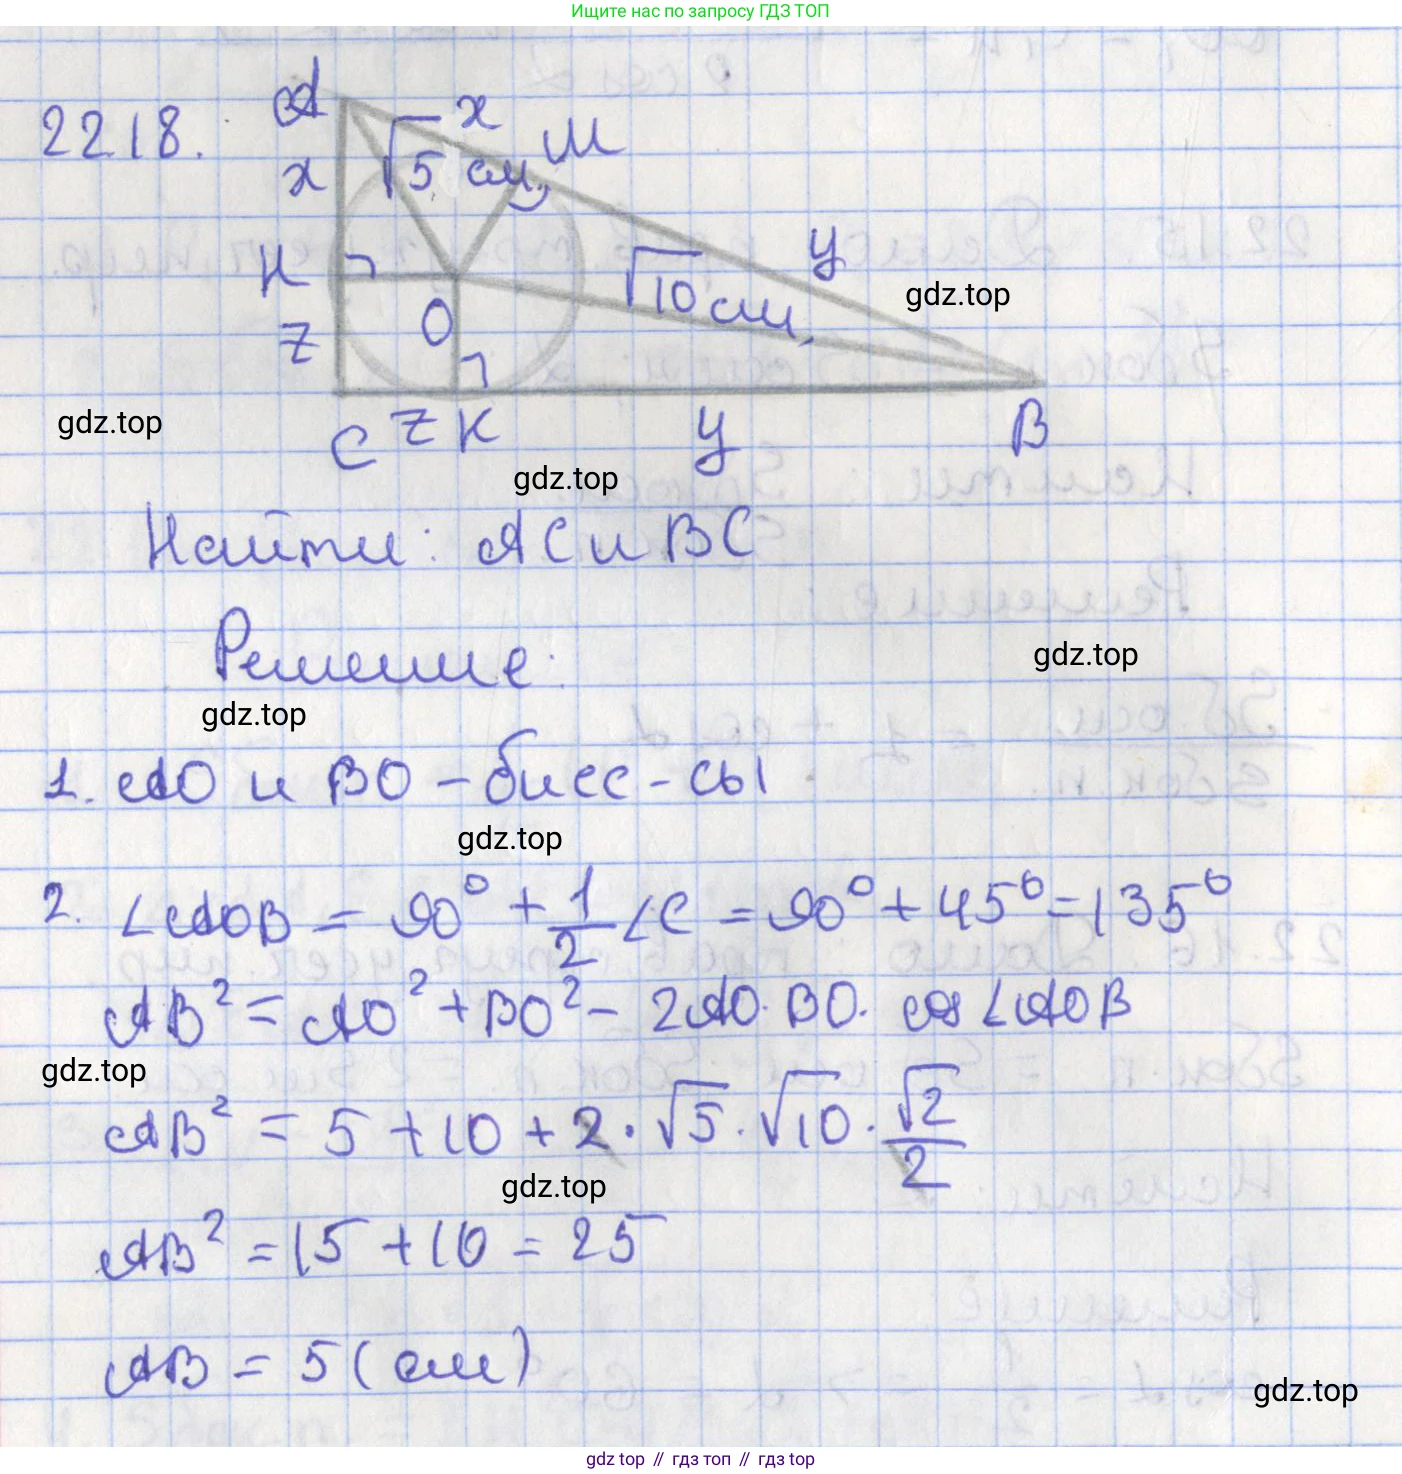 Ищите нас по запросу ГДЗ ТОП
22.18.
A x
x √5 см M
H y
√10 см
gdz.top
O
z
gdz.top
C z K y B
gdz.top
Найти: AC и BC
Решение:
gdz.top
gdz.top
1. AO и BO - бисс-сы
gdz.top
2. ∠AOB = 90° + 1/2 ∠C = 90° + 45° = 135°
AB² = AO² + BO² - 2AO · BO · cos ∠AOB
gdz.top
AB² = 5 + 10 + 2 · √5 · √10 · √2/2
gdz.top
AB² = 15 + 10 = 25
AB = 5 (см)
gdz.top
gdz top // гдз топ // гдз top